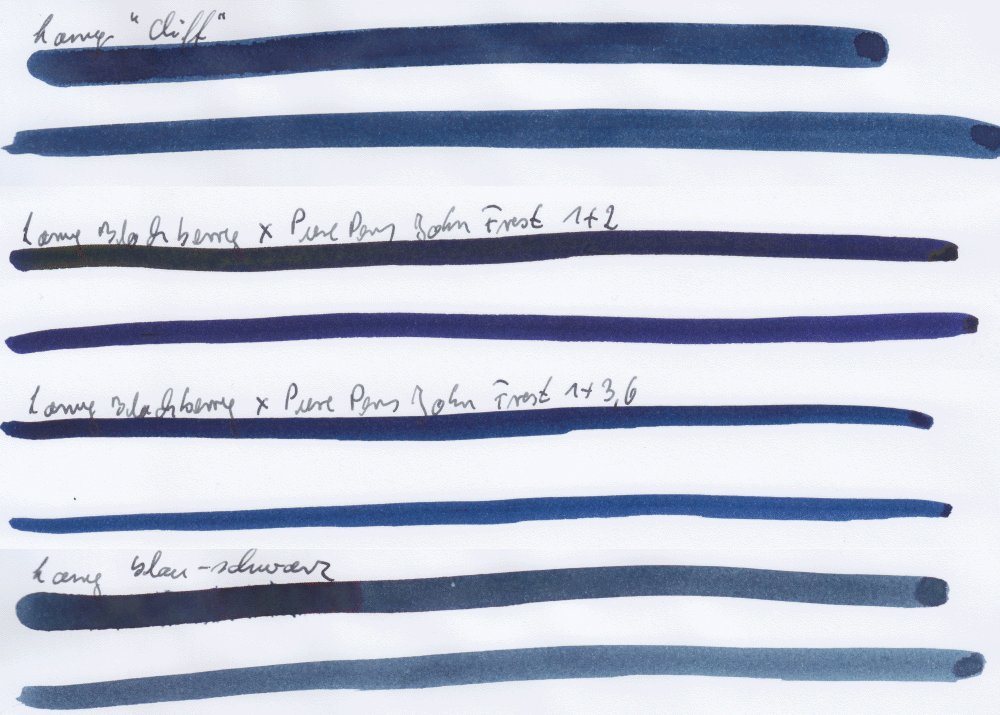 Lamy "Cliff"
Lamy Blackberry x Pure Pens John Frost 1+2
Lamy Blackberry x Pure Pens John Frost 1+3,6
Lamy blau-schwarz